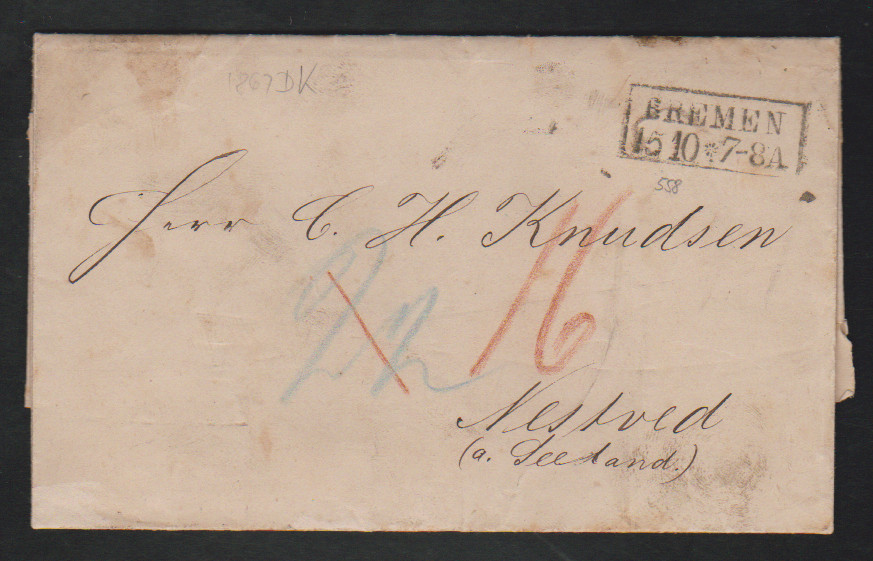 1867 DK
BREMEN
15 10 * 7-8 A
558
Herr C. H. Knudsen
22 16
Nestved
(a. Seeland.)